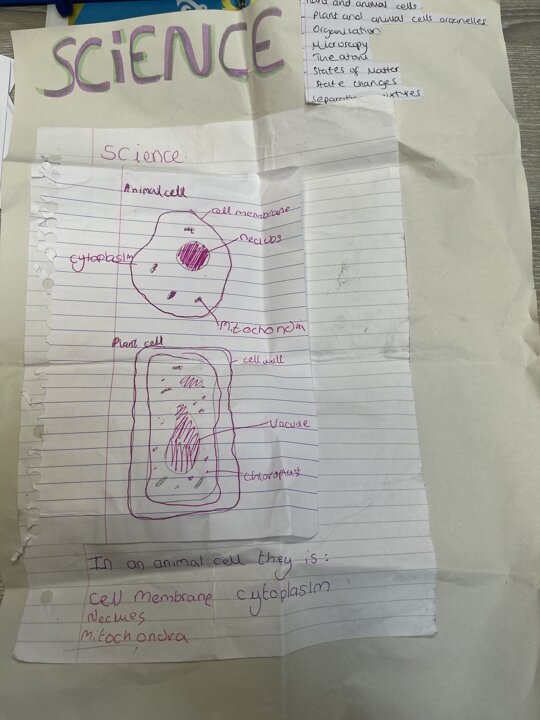 SCIENCE
and animal cells.
Plant and animal cells organelles
Organisation
Microscopy
The atom
States of Matter
State changes
Science
Animal cell
cell membrane
Neclues
cytoplasim
Mitochondrin
Plant cell
cell wall
Vacuole
chloroplast
In an animal cell they is:
cell membrane cytoplasim
Neclues
Mitochondra